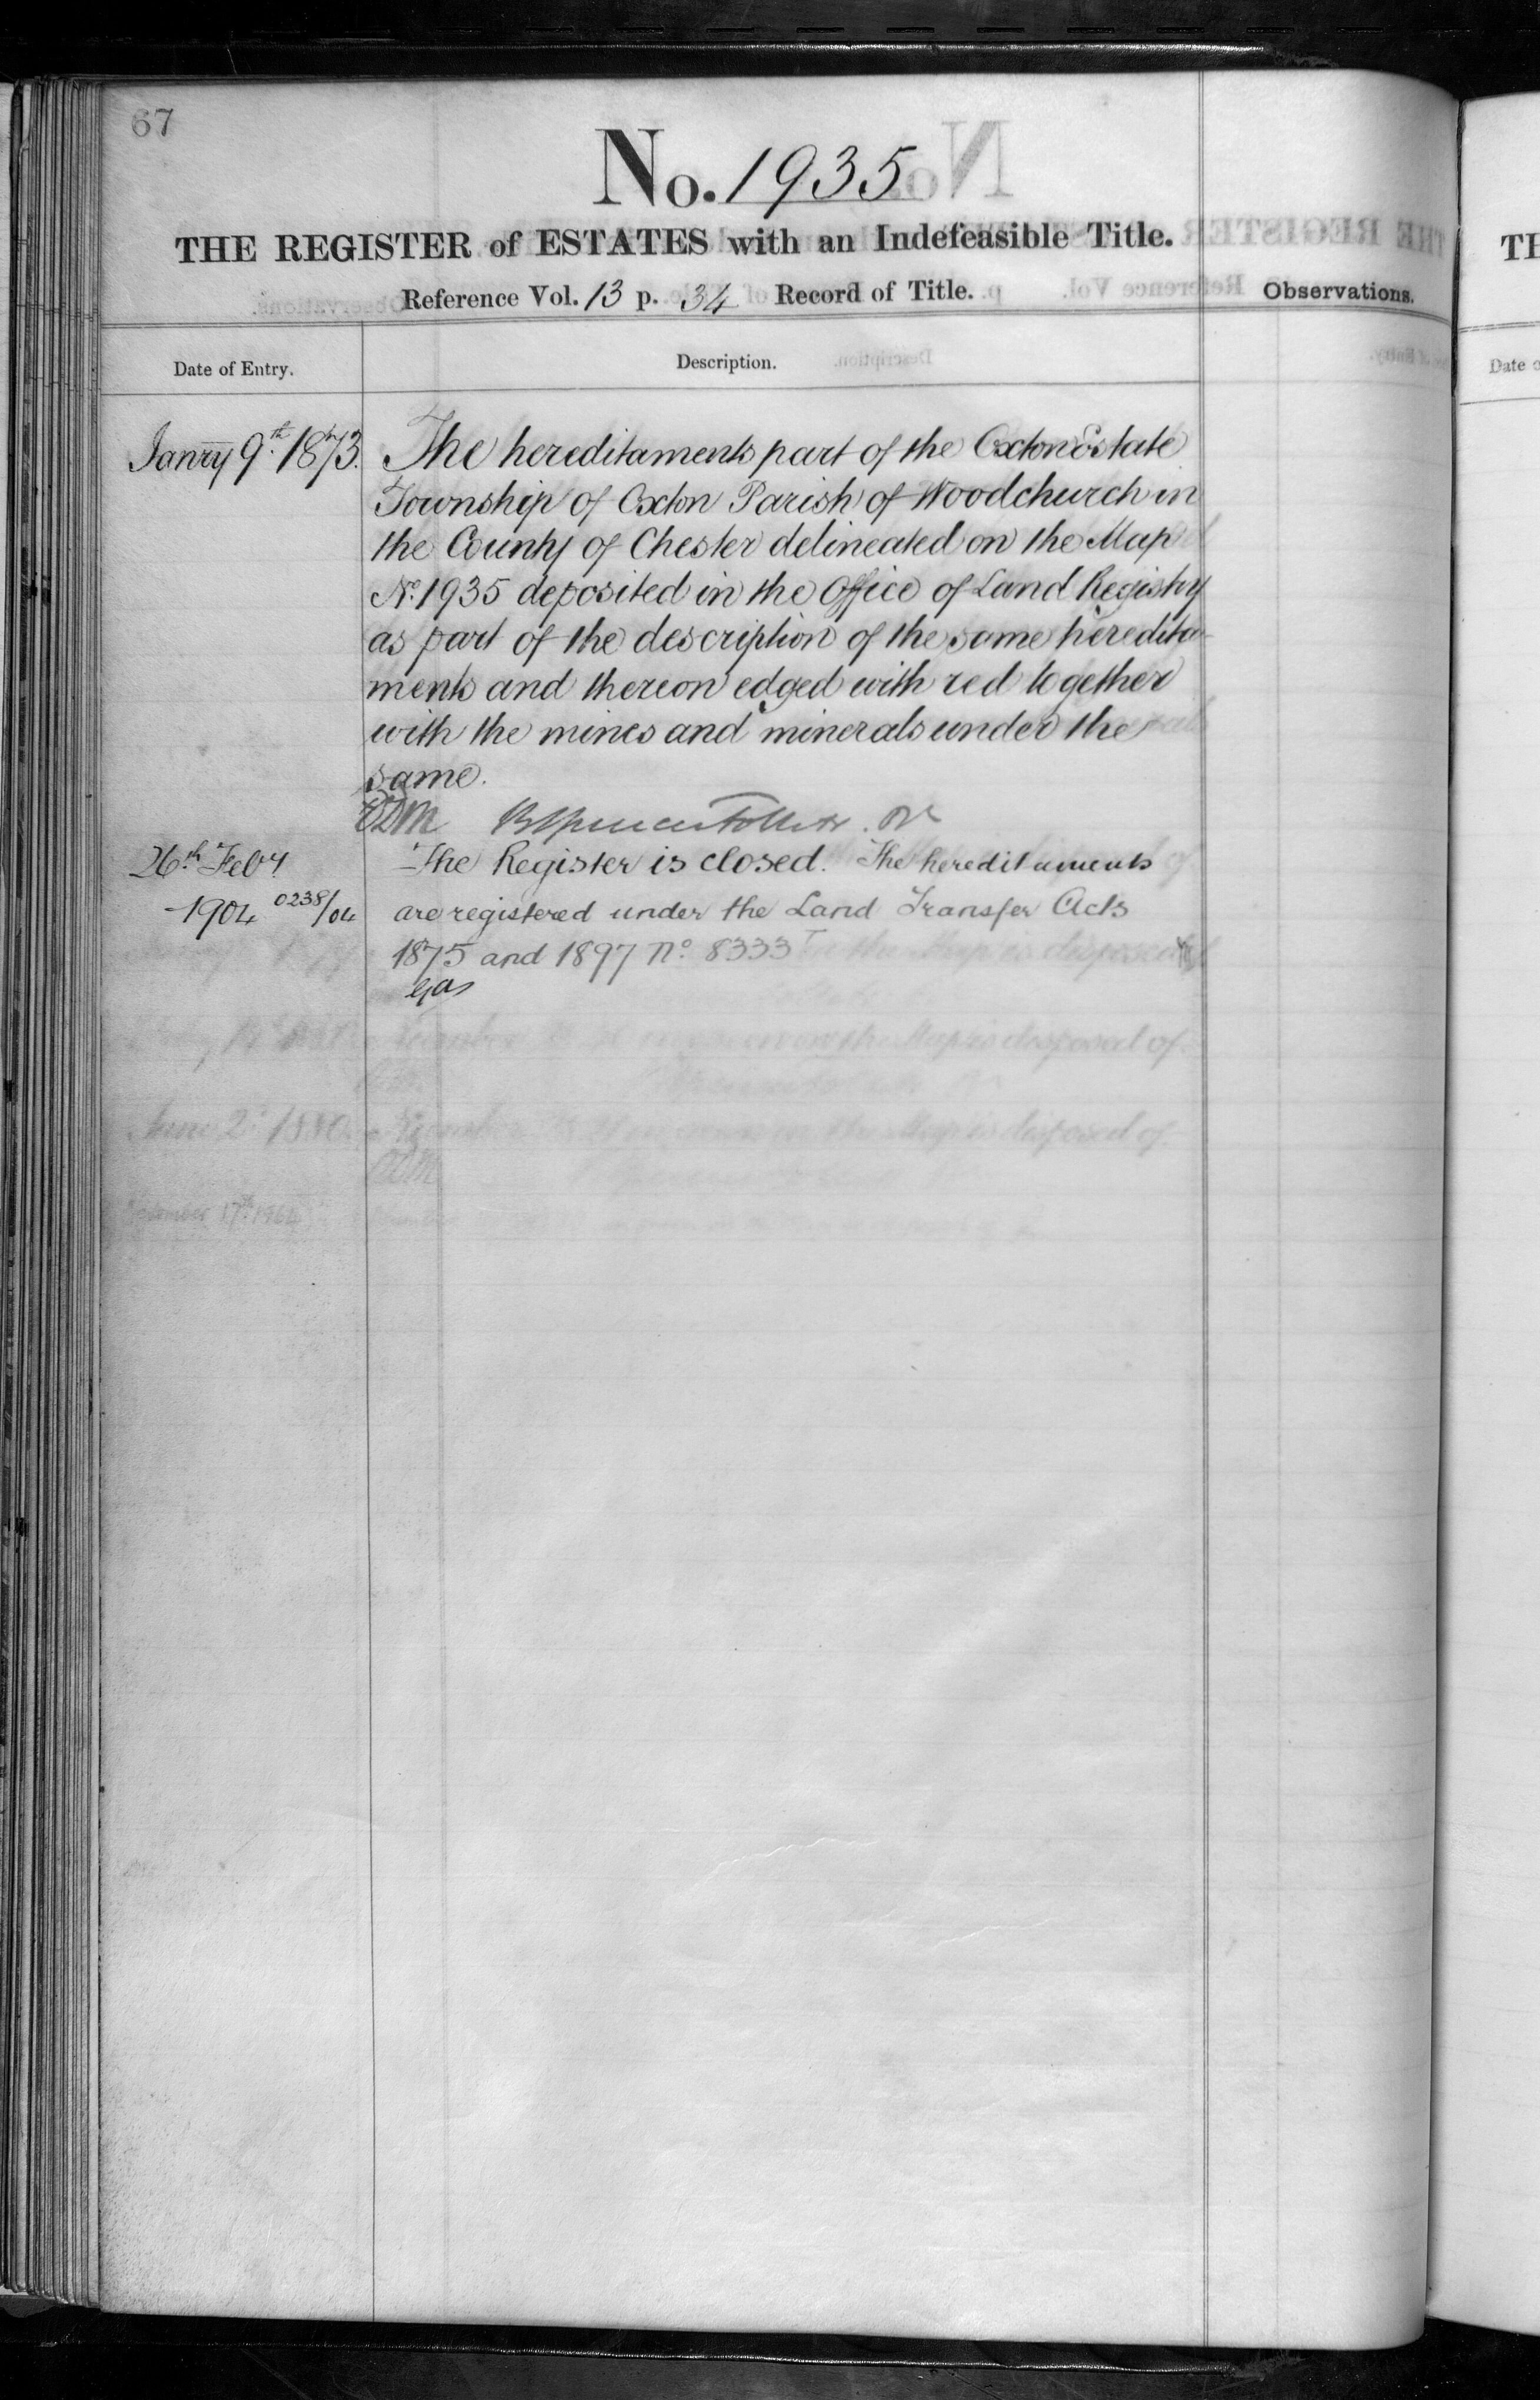 67
No. 1935
THE REGISTER of ESTATES with an Indefeasible Title.
Reference Vol. 13 p. 34 Record of Title.
Observations.
Date of Entry.
Description.
Janry 9th 1873.
The hereditaments part of the Oxton Estate
Township of Oxton Parish of Woodchurch in
the County of Chester delineated on the Map
No. 1935 deposited in the Office of Land Registry
as part of the description of the same heredita-
ments and thereon edged with red together
with the mines and minerals under the
same.
26th Feby
1904 0238/04
The Register is closed. The hereditaments
are registered under the Land Transfer Acts
1875 and 1897 No. 8333
TH
Date o